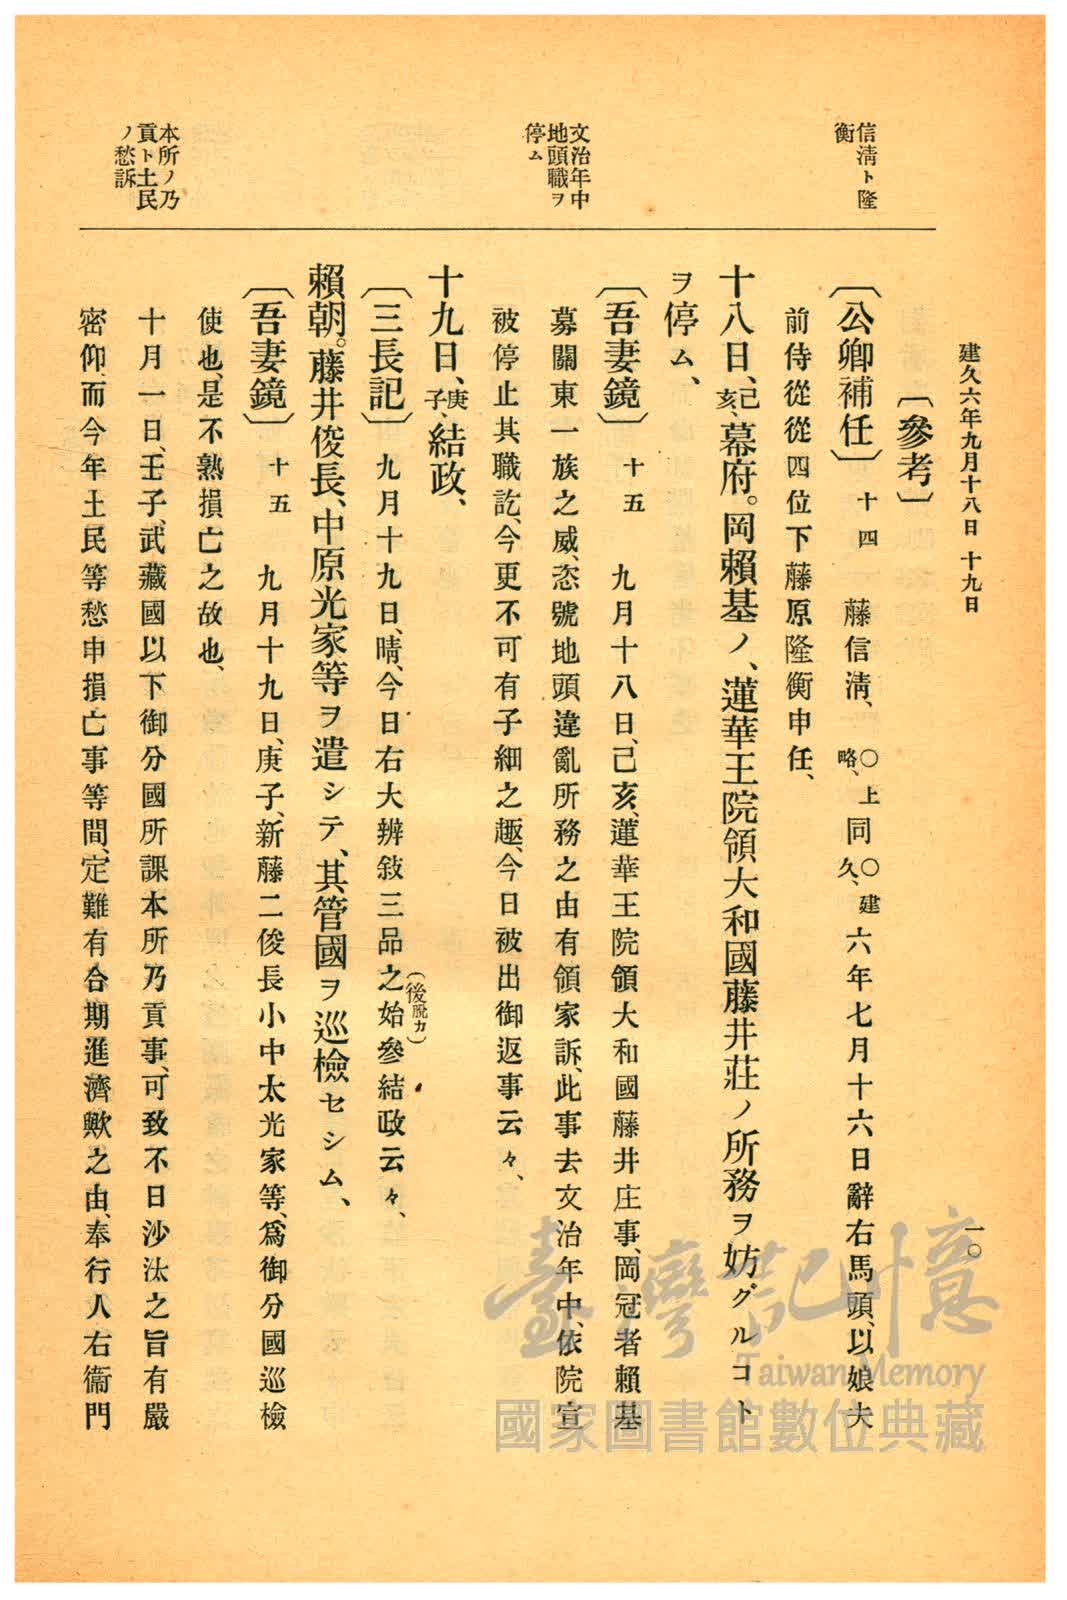 建久六年九月十八日 十九日
一〇
信淸ト隆
衡
文治年中
地頭職ヲ
停ム
本所ノ乃
貢ト土民
ノ愁訴
〔參考〕
〔公卿補任〕 十四 藤信淸、○上略、同○建久、六年七月十六日辭右馬頭、以娘夫
前侍從從四位下藤原隆衡申任、
十八日、己亥、幕府。岡賴基ノ、蓮華王院領大和國藤井莊ノ所務ヲ妨グルコト
ヲ停ム、
〔吾妻鏡〕 十五 九月十八日、己亥、蓮華王院領大和國藤井庄事、岡冠者賴基
募關東一族之威、恣號地頭、違亂所務之由有領家訴、此事去文治年中、依院宣
被停止其職訖、今更不可有子細之趣、今日被出御返事云々、
十九日、庚子、結政、
〔三長記〕 九月十九日、晴、今日右大辨敍三品之(後脫カ)始參結政云々、
賴朝。藤井俊長、中原光家等ヲ遣シテ、其管國ヲ巡檢セシム、
〔吾妻鏡〕 十五 九月十九日、庚子、新藤二俊長小中太光家等、爲御分國巡檢
使也、是不熟損亡之故也、
十月一日、壬子、武藏國以下御分國所課本所乃貢事、可致不日沙汰之旨有嚴
密仰、而今年土民等愁申損亡事等間、定難有合期進濟歟之由、奉行人右衞門
臺灣記憶
Taiwan Memory
國家圖書館數位典藏